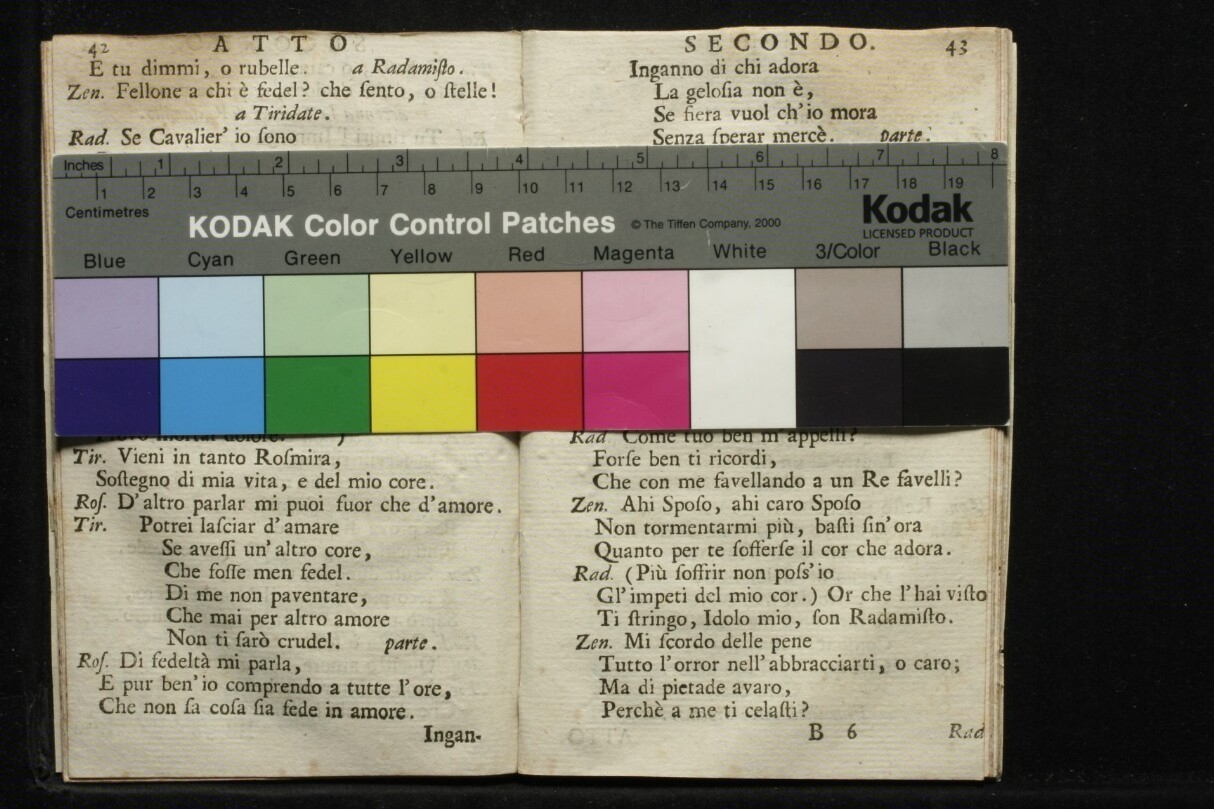 42 ATTO
E tu dimmi, o rubelle. a Radamiſto.
Zen. Fellone a chi è fedel? che ſento, o ſtelle!
a Tiridate.
Rad. Se Cavalier' io ſono
mortal dolore. )
Tir. Vieni in tanto Roſmira,
Soſtegno di mia vita, e del mio core.
Roſ. D'altro parlar mi puoi fuor che d'amore.
Tir. Potrei laſciar d'amare
Se aveſſi un'altro core,
Che foſſe men fedel.
Di me non paventare,
Che mai per altro amore
Non ti ſarò crudel. parte.
Roſ. Di fedeltà mi parla,
E pur ben'io comprendo a tutte l'ore,
Che non ſa coſa ſia fede in amore.
Ingan-
SECONDO. 43
Inganno di chi adora
La geloſia non è,
Se fiera vuol ch'io mora
Senza ſperar mercè. parte.
Inches 1 2 3 4 5 6 7 8
1 2 3 4 5 6 7 8 9 10 11 12 13 14 15 16 17 18 19
Centimetres
KODAK Color Control Patches © The Tiffen Company, 2000 Kodak
LICENSED PRODUCT
Blue Cyan Green Yellow Red Magenta White 3/Color Black
Rad Come tuo ben m'appelli?
Forſe ben ti ricordi,
Che con me favellando a un Re favelli?
Zen. Ahi Spoſo, ahi caro Spoſo
Non tormentarmi più, baſti ſin'ora
Quanto per te ſofferſe il cor che adora.
Rad. (Più ſoffrir non poſs'io
Gl'impeti del mio cor.) Or che l'hai viſto
Ti ſtringo, Idolo mio, ſon Radamiſto.
Zen. Mi ſcordo delle pene
Tutto l'orror nell'abbracciarti, o caro;
Ma di pietade avaro,
Perchè a me ti celaſti?
B 6 Rad